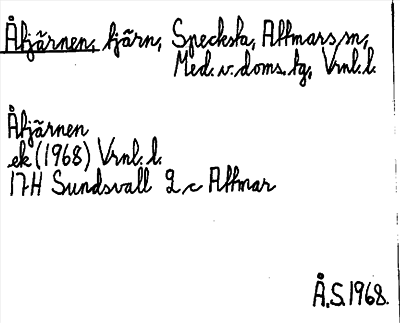 Åtjärnen, tjärn, Specksta, Attmars sn,
Med. v. doms. tg, Vrnl. l.
Åtjärnen
ek (1968) Vrnl. l.
17H Sundsvall 2 c Attmar
Å.S. 1968.